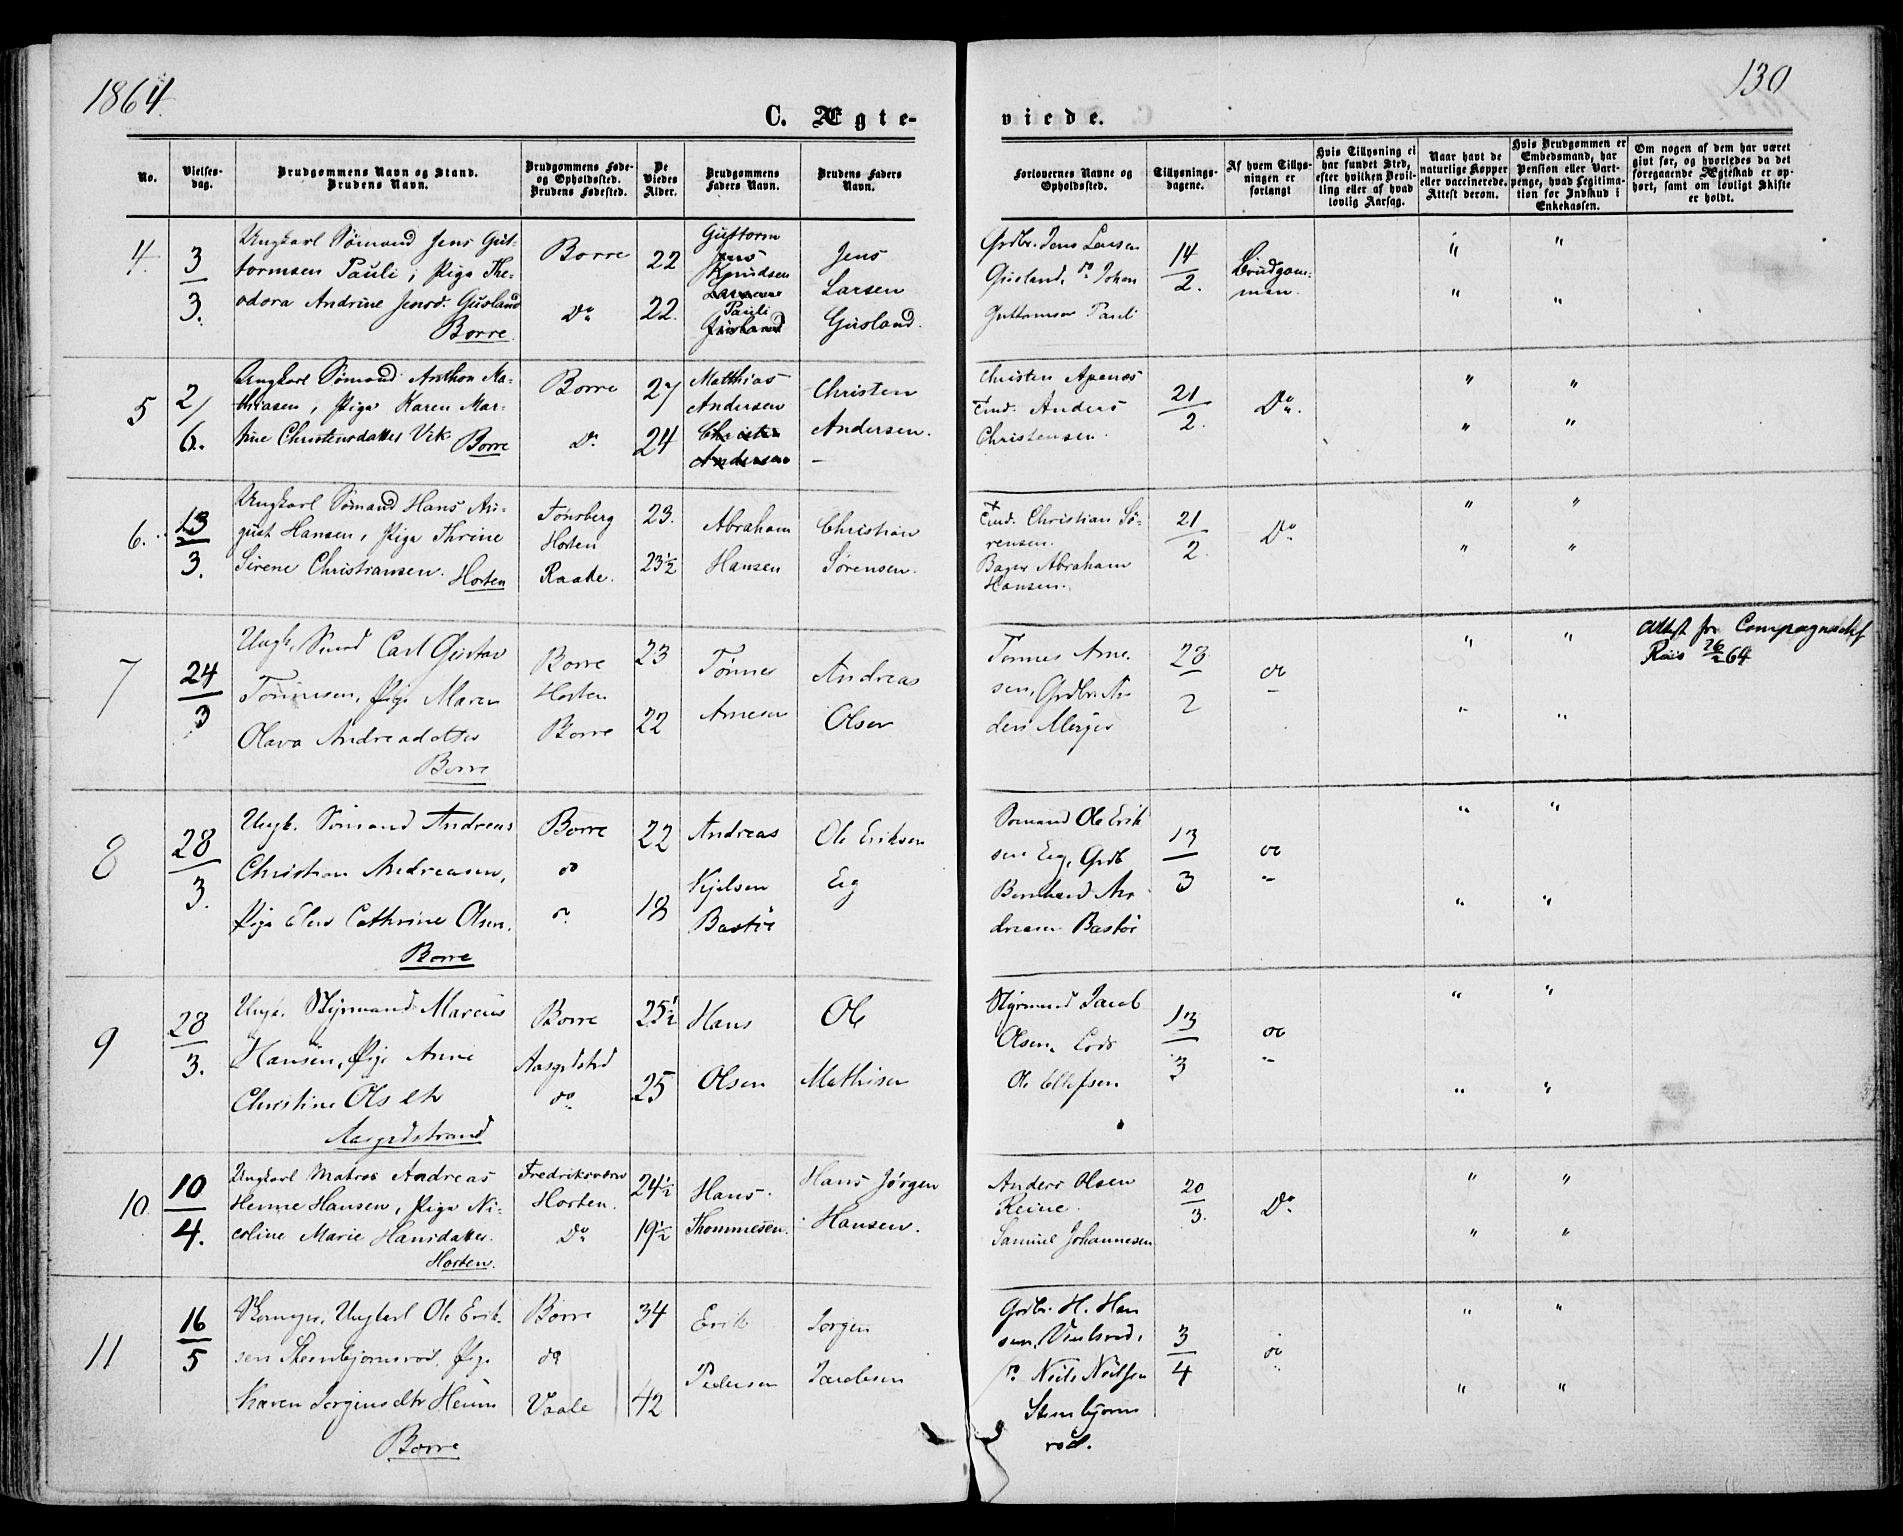 1864.
130
C. Ægte-
viede.
No.
Vielses-
dag.
Brudgommens Navn og Stand.
Brudens Navn.
Brudgommens Føde-
og Opholdssted.
Brudens Fødested.
De
Viedes
Alder.
Brudgommens
Faders Navn.
Brudens Faders
Navn.
Forlovernes Navne og
Opholdssted.
Tillysnings-
dagene.
Af hvem Tillys-
ningen er
forlangt
Hvis Tillysning ei
har fundet Sted,
efter hvilken Bevil-
ling eller af hvad
lovlig Aarsag.
Naar havt de
naturlige Kopper
eller vaccinerede.
Attest derom.
Hvis Brudgommen er
Embedsmand, har
Pension eller Vart-
penge, hvad Legitima-
tion for Indskud i
Enkekassen.
Om nogen af dem har været
givt før, og hvorledes da det
foregaaende Ægteskab er op-
hørt, samt om lovligt Skifte
er holdt.
4.
3
3.
Ungkarl Sømand Jens Gut-
tormsen Pauli, Pige The-
odora Andrine Jensd. Gusland
Borre.
Borre
Do
22
22.
Guttorm
Jens
Knudsen
Larsen
Pauli
Gusland
Jens
Larsen
Gusland.
Grdbr. Jens Larsen
Gusland, Do Johan
Guttormsen Pauli
14
2.
Brudgom-
men.
" "
" "
5
2/
6.
Ungkarl Sømand Anthon Ma-
thiasen, Pige Karen Mar-
tine Christensdatter Vik
Borre
Borre
Do
27
24
Matthias
Andersen
Christen
Andersen
Christen
Andersen.
Christen Apenæs
Tmd. Anders
Christensen.
21
2.
Do.
" "
" "
6.
13
3.
Ungkarl Sømand Hans Au-
gust Hansen, Pige Thrine
Sirene Christiansen.
Horten
Tønsberg
Horten
Raade.
23.
23½
Abraham
Hansen
Christian
Sørensen.
Tmd. Christian Sø-
rensen.
Bager Abraham
Hansen.
21
2.
Do
" "
" "
7
24
3
Ungk. Smd Carl Gustav
Tønnesen, Pige Maren
Olava Andreadatter
Borre
Borre
Horten
Borre
23
22
Tønnes
Arnesen
Andreas
Olsen
Tønnes Arne-
sen, Grdbr. An-
ders
23
2
do
" "
" "
Attest fr Compagnichf
26/2 64
8
28
3.
Ungk. Sømand Andreas
Christian Andreasen,
Pige Elen Cathrine Olsen.
Borre
Borre
do
do
22
18
Andreas
Kjelsen
Bastøe
Ole Eriksen
Eeg
Sømand Ole Erik
sen Eeg, Grdb
Bernhard An
dreasen Bastøe
13
3
do
" "
" "
9
28
3.
Ungk. Styrmand Marcus
Hansen, Pige Anne
Christine Ols dtr
Aasgrdstrand
Borre
Aasgrdstrd
do
25½
25
Hans
Olsen
Ole
Mathisen
Styrmand Jacob
Olsen, Lods
Ole Ellefsen
13
3
do
" "
" "
10
10
4.
Ungkarl Matros Andreas
Henne Hansen, Pige Ni-
coline Marie Hansdatter.
Horten.
Fredriksværn
Horten.
Do
24½
19½
Hans
Thommesen.
Hans Jørgen
Hansen.
Anders Olsen
Reine.
Samuel Johannesen
20
3.
Do
" "
" "
11
16
5
Ungkarl Ole Erik-
sen Steenbjørnrød, Pige
Karen Jørgensdtr Heum
Borre
Borre
do
Vaale
34
42
Erik
Pedersen
Jørgen
Jacobsen
Grdbr. H. Han
sen,
do Neils Neilsen
Steenbjørns
rød.
3
4
do
" "
" "